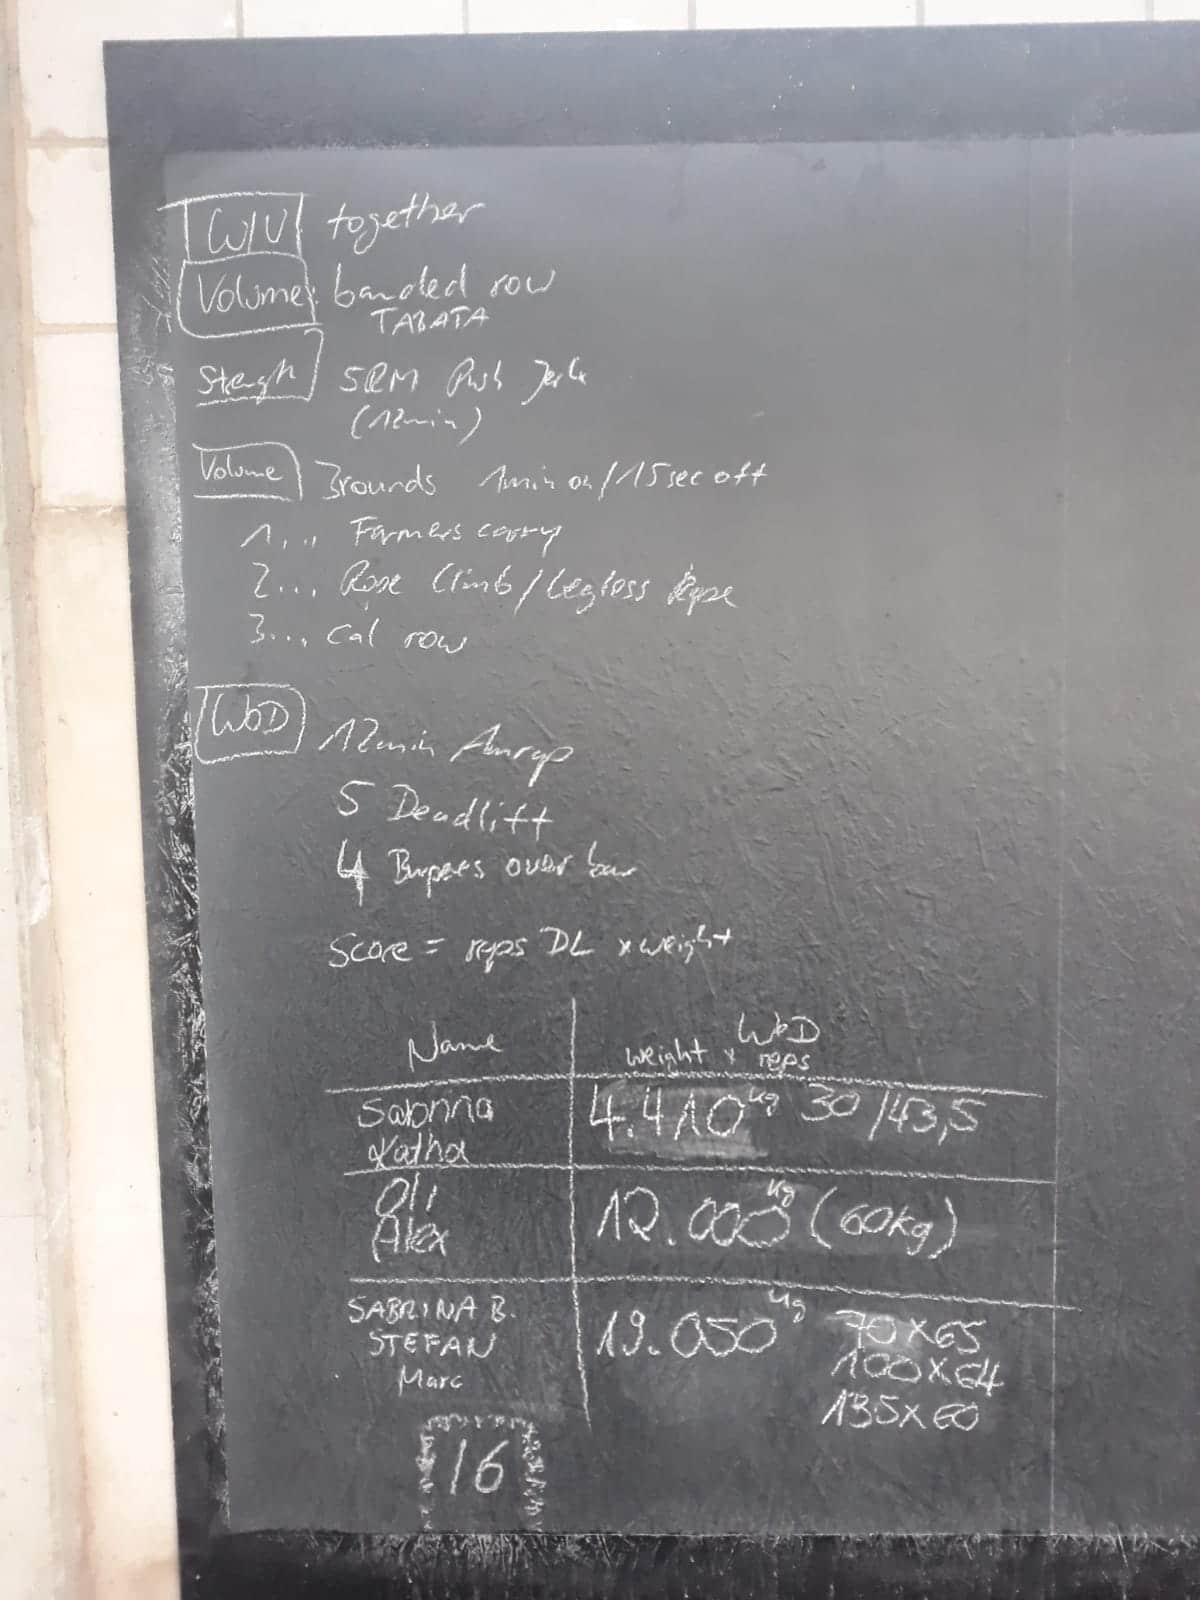 W/U together
Volume: banded row
TABATA
Stengh 5RM Push Jerk
(12min)
Volume 3rounds 1min on/15sec off
1... Farmers carry
2... Rope Climb/Legless Rope
3... Cal row
WOD 12min Amrap
5 Deadlift
4 Burpees over bar
Score = reps DL x weight
Name WOD
weight x reps
Sabrina 4.410kg 30/43,5
Katha
Oli 12.000kg (60kg)
Alex
SABRINA B. 19.050kg 70x65
STEFAN 100x64
Marc 135x60
16